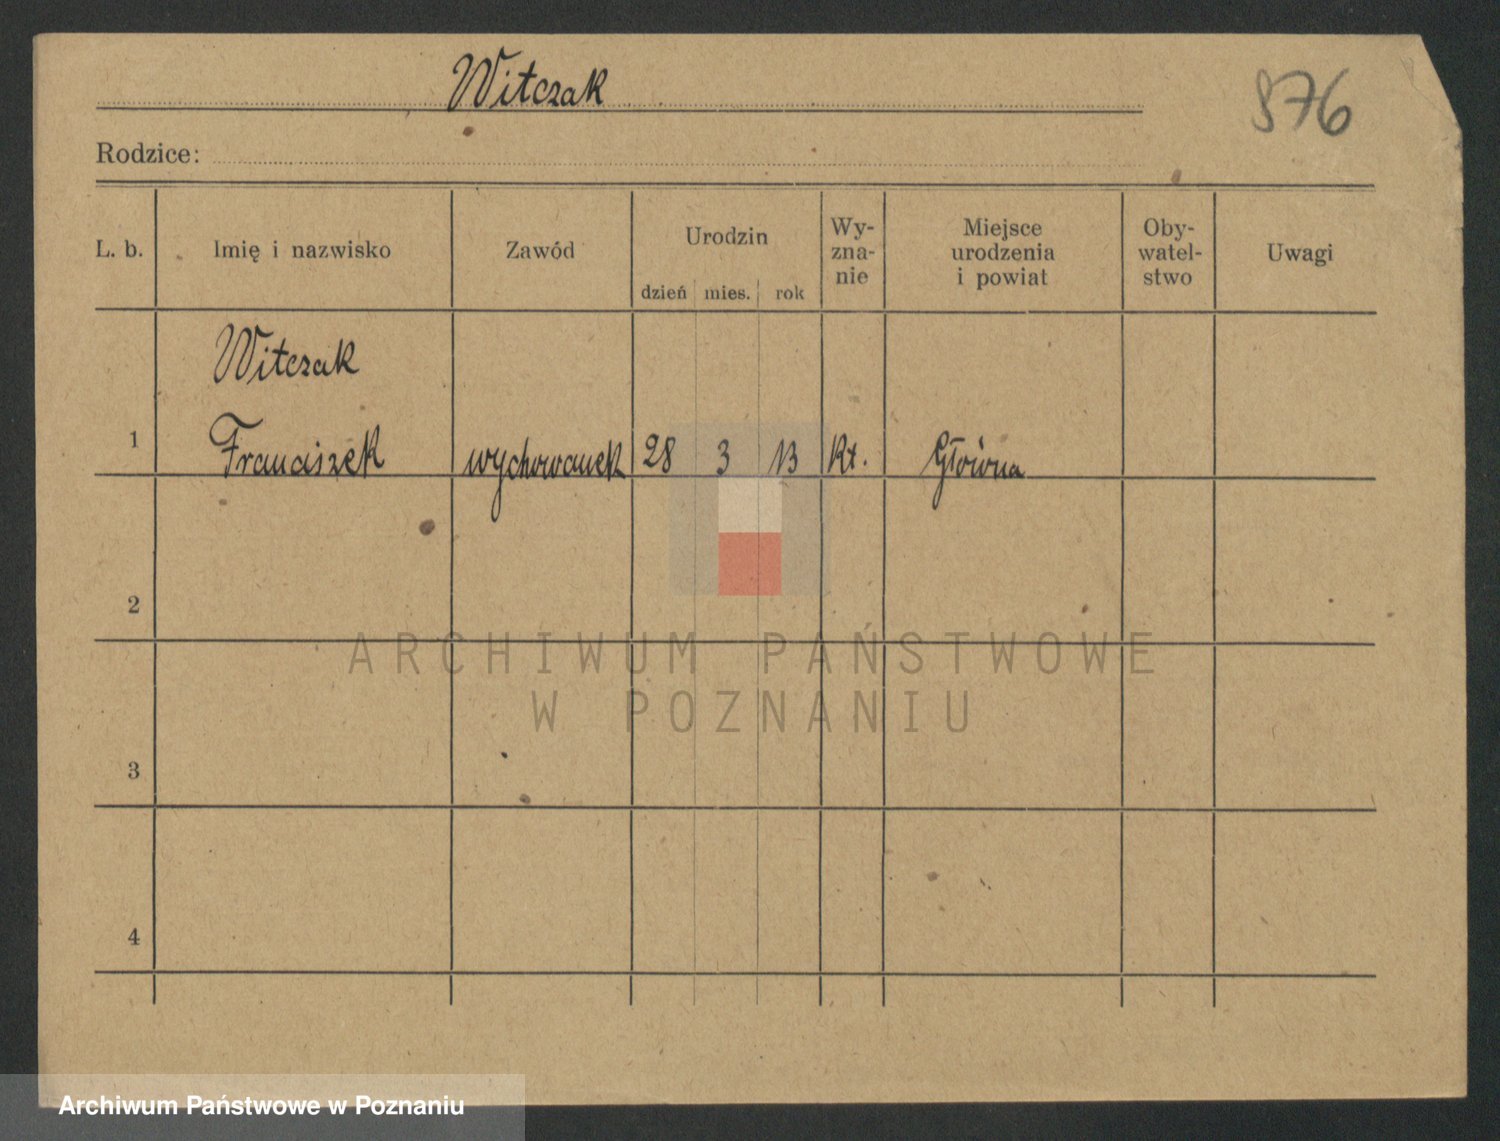 Witczak
976
Rodzice:
L. b. Imię i nazwisko Zawód Urodzin dzień mies. rok Wy-
zna-
nie Miejsce
urodzenia
i powiat Oby-
watel-
stwo Uwagi
Witczak
1 Franciszek wychowanek 28 3 13 kt. Główna
2
ARCHIWUM PAŃSTWOWE
W POZNANIU
3
4
Archiwum Państwowe w Poznaniu